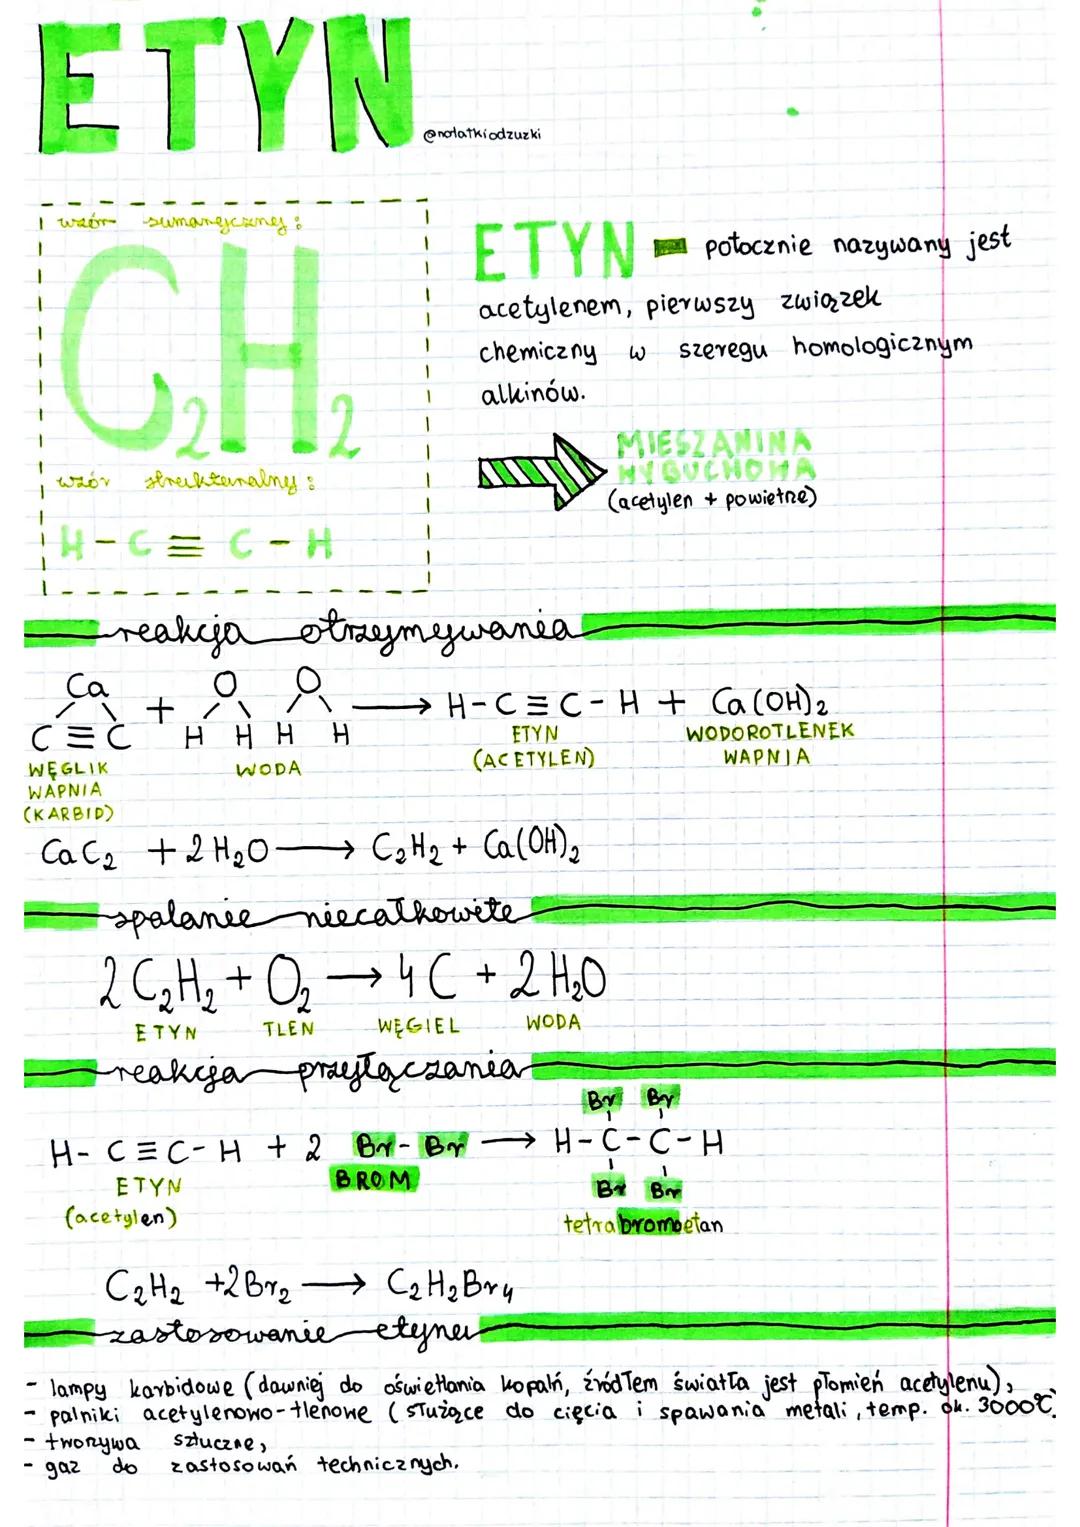 ETYN
@notatkiodzuzki
wzór sumaryczny:
C₂H₂
wzór strukturalny:
H-C≡C-H
ETYN - potocznie nazywany jest
acetylenem, pierwszy związek
chemiczny w szeregu homologicznym
alkinów.
MIESZANINA
WYBUCHOWA
(acetylen + powietrze)
reakcja otrzymywania
Ca O O
C≡C + H H H H → H-C≡C-H + Ca(OH)₂
WĘGLIK WAPNIA (KARBID)
WODA
ETYN
(ACETYLEN)
WODOROTLENEK
WAPNIA
CaC₂ + 2H₂O → C₂H₂ + Ca(OH)₂
spalanie niecałkowite
2C₂H₂ + O₂ → 4C + 2H₂O
ETYN TLEN WĘGIEL WODA
reakcja przyłączania
Br Br
H-C≡C-H + 2 Br-Br → H-C-C-H
ETYN BROM Br Br
(acetylen) tetrabromoetan
C₂H₂ +2Br₂ → C₂H₂Br₄
zastosowanie etynu
- lampy karbidowe (dawniej do oświetlania kopalń, źródłem światła jest płomień acetylenu),
- palniki acetylenowo-tlenowe (służące do cięcia i spawania metali, temp. ok. 3000°C),
- tworzywa sztuczne,
- gaz do zastosowań technicznych.